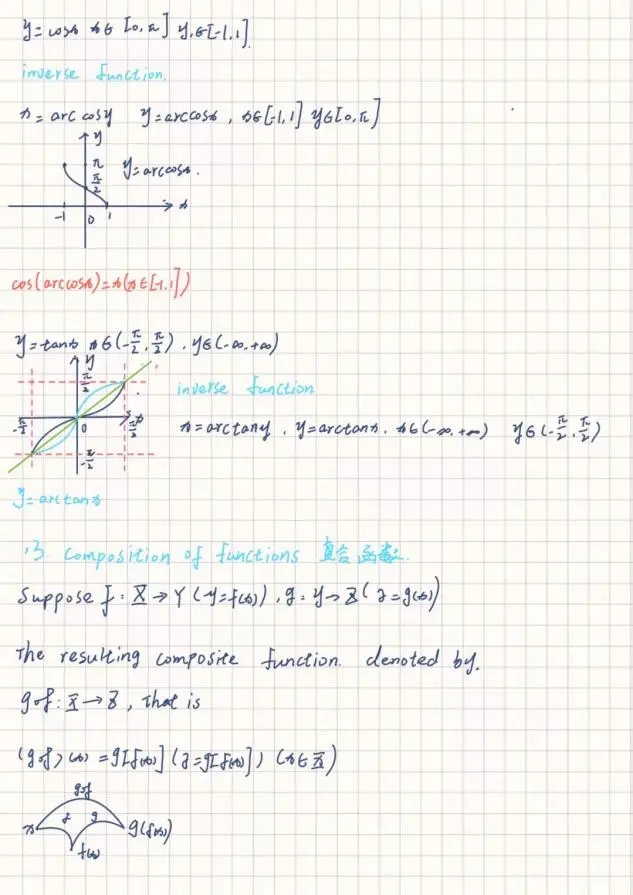 y=cosx x∈[0,π] y∈[-1,1].
inverse function.
x=arccosy y=arccosx, x∈[-1,1] y∈[0,π]
y
π
π/2
y=arccosx.
-1 0 1 x
cos(arccosx)=x(x∈[-1,1])
y=tanx x∈(-π/2,π/2). y∈(-∞,+∞)
y
π/2
inverse function
-π/2 0 π/2 x
x=arctany. y=arctanx. x∈(-∞,+∞) y∈(-π/2,π/2)
-π/2
y=arctanx
13. Composition of functions 复合函数.
Suppose f: X→Y (y=f(x)), g: y→Z (z=g(x))
The resulting composite function. denoted by.
g∘f: X→Z, That is
(g∘f)(x)=g[f(x)] (z=g[f(x)]) (x∈X)
g∘f
f g
x g(f(x))
f(x)